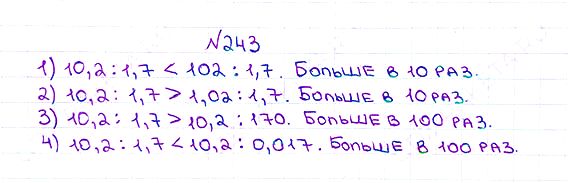 №243
1) 10,2 : 1,7 < 102 : 1,7. БОЛЬШЕ В 10 РАЗ.
2) 10,2 : 1,7 > 1,02 : 1,7. БОЛЬШЕ В 10 РАЗ.
3) 10,2 : 1,7 > 10,2 : 170. БОЛЬШЕ В 100 РАЗ.
4) 10,2 : 1,7 < 10,2 : 0,017. БОЛЬШЕ В 100 РАЗ.